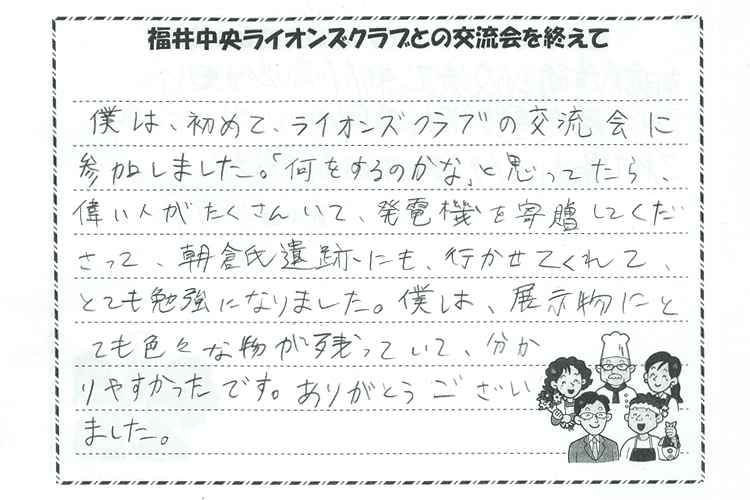 福井中央ライオンズクラブとの交流会を終えて
僕は、初めて、ライオンズクラブの交流会に
参加しました。「何をするのかな」と思ってたら、
偉い人がたくさんいて、発電機を寄贈してくだ
さって、朝倉氏遺跡にも、行かせてくれて、
とても勉強になりました。僕は、展示物にと
ても色々な物が残っていて、分か
りやすかったです。ありがとうござい
ました。